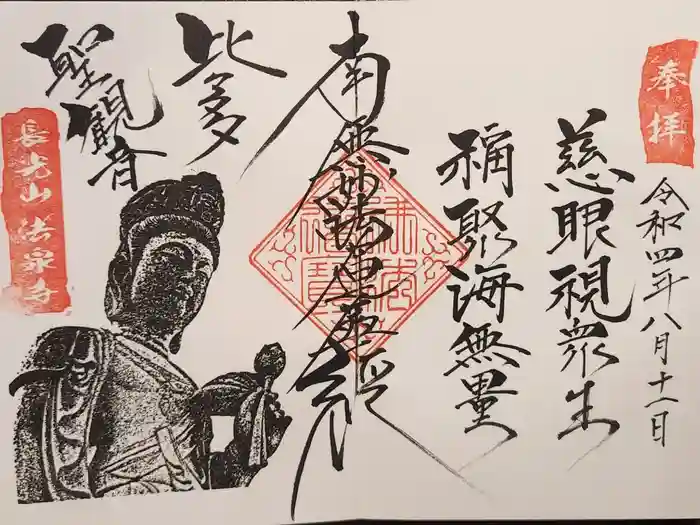 奉拝
令和四年八月十一日
慈眼視衆生
福聚海無量
南無妙法蓮華経
比多
聖観音
長光山 法泉寺